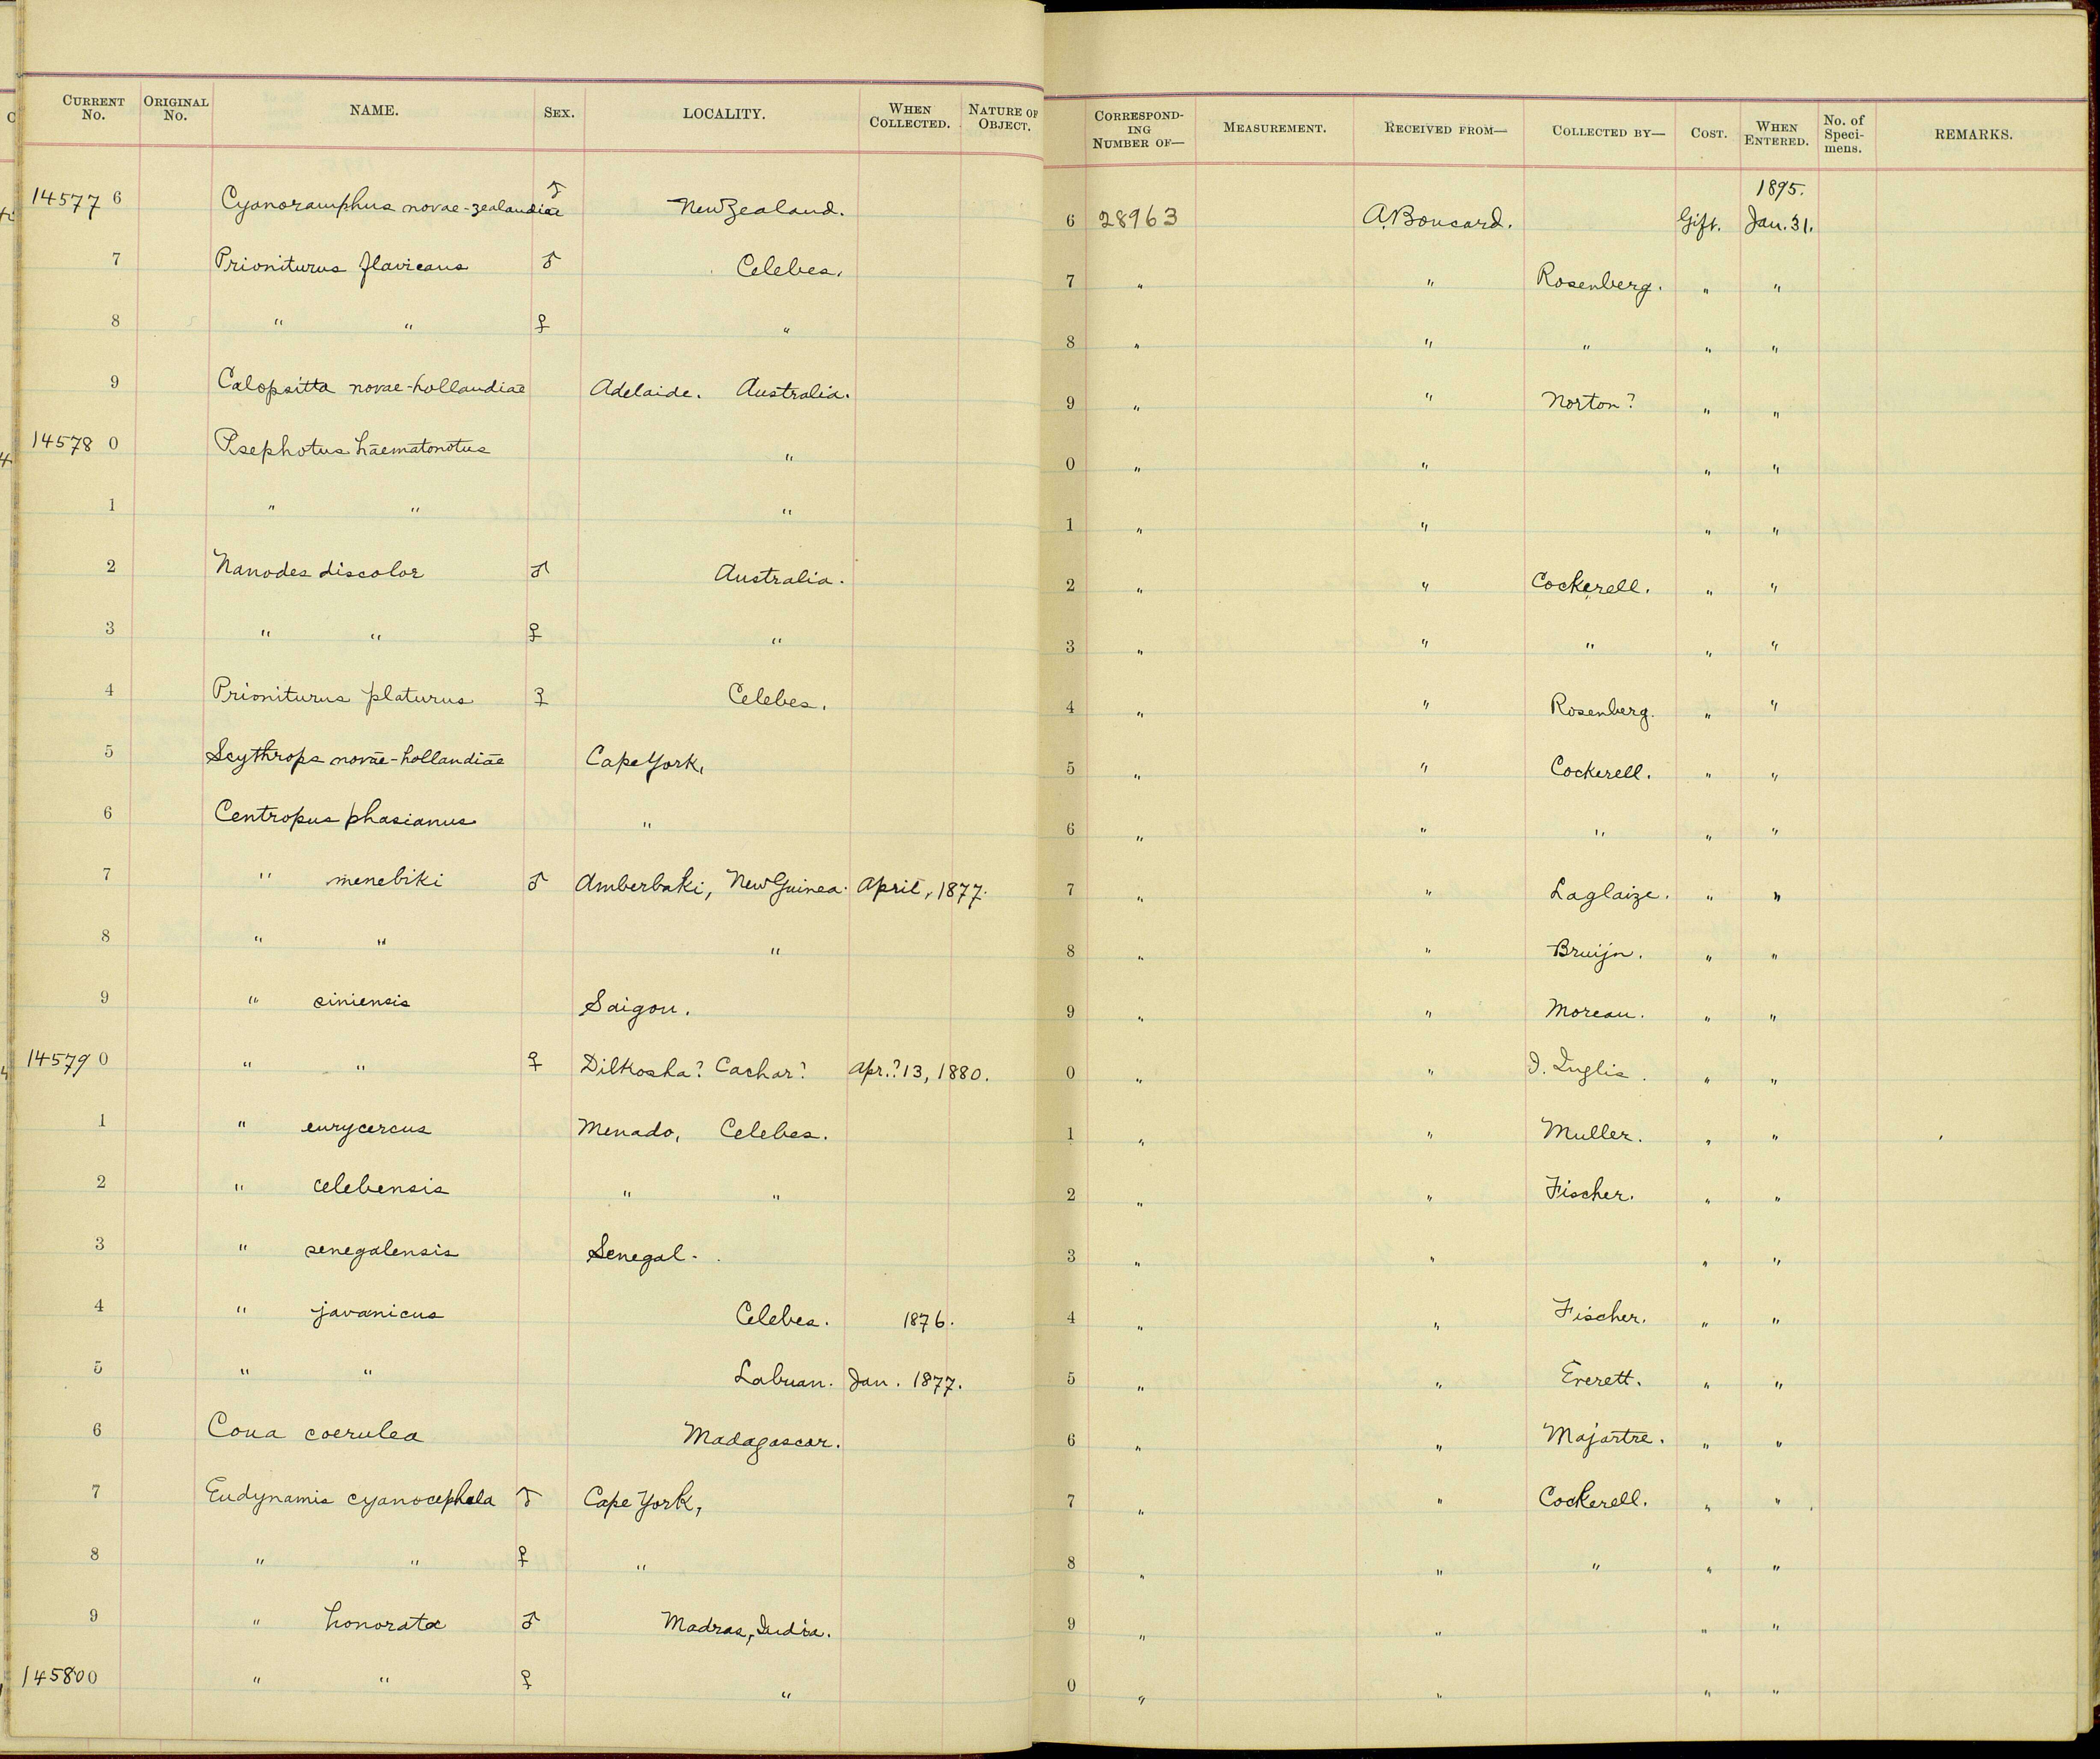 CURRENT No. ORIGINAL No. NAME. SEX. LOCALITY. WHEN COLLECTED. NATURE OF OBJECT. CORRESPONDING NUMBER OF— MEASUREMENT. RECEIVED FROM— COLLECTED BY— COST. WHEN ENTERED. No. of Specimens. REMARKS.
1895.
14577 6 Cyanoramphus novae-zealandiae ♂ New Zealand. 6 28963 A. Boucard. Gift. Jan. 31.
7 Prioniturus flavicans ♂ Celebes. 7 " " Rosenberg. " "
8 " " ♀ " 8 " " " " "
9 Calopsitta novae-hollandiae Adelaide. Australia. 9 " " Norton? " "
14578 0 Psephotus haematonotus " 0 " " " "
1 " " " 1 " " " "
2 Nanodes discolor ♂ Australia. 2 " " Cockerell. " "
3 " " ♀ " 3 " " " " "
4 Prioniturus platurus ♀ Celebes. 4 " " Rosenberg. " "
5 Scythrops novae-hollandiae Cape York, 5 " " Cockerell. " "
6 Centropus phasianus " 6 " " " " "
7 " menebiki ♂ Amberbaki, New Guinea. April, 1877. 7 " " Laglaize. " "
8 " " " 8 " " Bruijn. " "
9 " siniensis Saigon. 9 " " Moreau. " "
14579 0 " " ♀ Dilkosha? Cachar? Apr.? 13, 1880. 0 " " J. Inglis. " "
1 " eurycercus Menado, Celebes. 1 " " Muller. " "
2 " celebensis " " 2 " " Fischer. " "
3 " senegalensis Senegal. 3 " " " "
4 " javanicus Celebes. 1876. 4 " " Fischer. " "
5 " " Labuan. Jan. 1877. 5 " " Everett. " "
6 Coua coerulea Madagascar. 6 " " Majartre. " "
7 Eudynamis cyanocephala ♂ Cape York, 7 " " Cockerell. " "
8 " " ♀ " 8 " " " " "
9 " honorata ♂ Madras, India. 9 " " " "
14580 0 " " ♀ " 0 " " " "